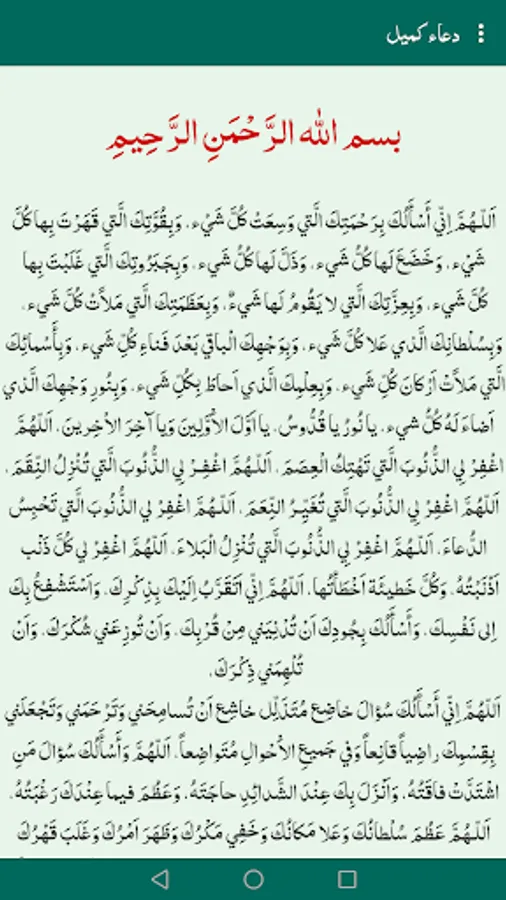 دعاء كميل
بسم الله الرَّحْمَنِ الرَّحِيمِ
اَللّـهُمَّ اِنّي أَسْأَلُكَ بِرَحْمَتِكَ الَّتي وَسِعَتْ كُلَّ شَيْء، وَبِقُوَّتِكَ الَّتي قَهَرْتَ بِها كُلَّ
شَيْء، وَخَضَعَ لَها كُلُّ شَيء، وَذَلَّ لَها كُلُّ شَيء، وَبِجَبَرُوتِكَ الَّتي غَلَبْتَ بِها
كُلَّ شَيء، وَبِعِزَّتِكَ الَّتي لا يَقُومُ لَها شَيءٌ، وَبِعَظَمَتِكَ الَّتي مَلاََتْ كُلَّ شَيء،
وَبِسُلْطانِكَ الَّذي عَلا كُلَّ شَيء، وَبِوَجْهِكَ الْباقي بَعْدَ فَناءِ كُلِّ شَيء، وَبِأَسْمائِكَ
الَّتي مَلاََتْ اَرْكانَ كُلِّ شَيء، وَبِعِلْمِكَ الَّذي اَحاطَ بِكُلِّ شَيء، وَبِنُورِ وَجْهِكَ الَّذي
اَضاءَ لَهُ كُلُّ شيء، يا نُورُ يا قُدُّوسُ، يا اَوَّلَ الاَْوَّلِينَ وَيا آخِرَ الاْخِرينَ، اَللّهُمَّ
اغْفِرْ لِي الذُّنُوبَ الَّتي تَهْتِكُ الْعِصَمَ، اَللّـهُمَّ اغْفِـرْ لِي الذُّنُوبَ الَّتي تُنْزِلُ النِّقَمَ،
اَللّهُمَّ اغْفِرْ لِي الذُّنُوبَ الَّتي تُغَيِّـرُ النِّعَمَ، اَللّـهُمَّ اغْفِرْ لي الذُّنُوبَ الَّتي تَحْبِسُ
الدُّعاءَ، اَللّـهُمَّ اغْفِرْ لِي الذُّنُوبَ الَّتي تُنْزِلُ الْبَلاءَ، اَللّهُمَّ اغْفِرْ لي كُلَّ ذَنْب
اَذْنَبْتُهُ، وَكُلَّ خَطيئَة اَخْطَأتُها، اَللّهُمَّ اِنّي اَتَقَرَّبُ اِلَيْكَ بِذِكْرِكَ، وَاَسْتَشْفِعُ بِكَ
اِلى نَفْسِكَ، وَأَسْأَلُكَ بِجُودِكَ اَنْ تُدْنِيَني مِنْ قُرْبِكَ، وَاَنْ تُوزِعَني شُكْرَكَ، وَاَنْ
تُلْهِمَني ذِكْرَكَ،
اَللّهُمَّ اِنّي أَسْأَلُكَ سُؤالَ خاضِع مُتَذَلِّل خاشِع اَنْ تُسامِحَني وَتَرْحَمَني وَتَجْعَلَني
بِقِسْمِكَ راضِياً قانِعاً وَفي جَميعِ الاَْحْوالِ مُتَواضِعاً، اَللّهُمَّ وَأَسْأَلُكَ سُؤالَ مَنِ
اشْتَدَّتْ فاقَتُهُ، وَاَنْزَلَ بِكَ عِنْدَ الشَّدائِدِ حاجَتَهُ، وَعَظُمَ فيما عِنْدَكَ رَغْبَتُهُ،
اَللّـهُمَّ عَظُمَ سُلْطانُكَ وَعَلا مَكانُكَ وَخَفِي مَكْرُكَ وَظَهَرَ اَمْرُكَ وَغَلَبَ قَهْرُكَ